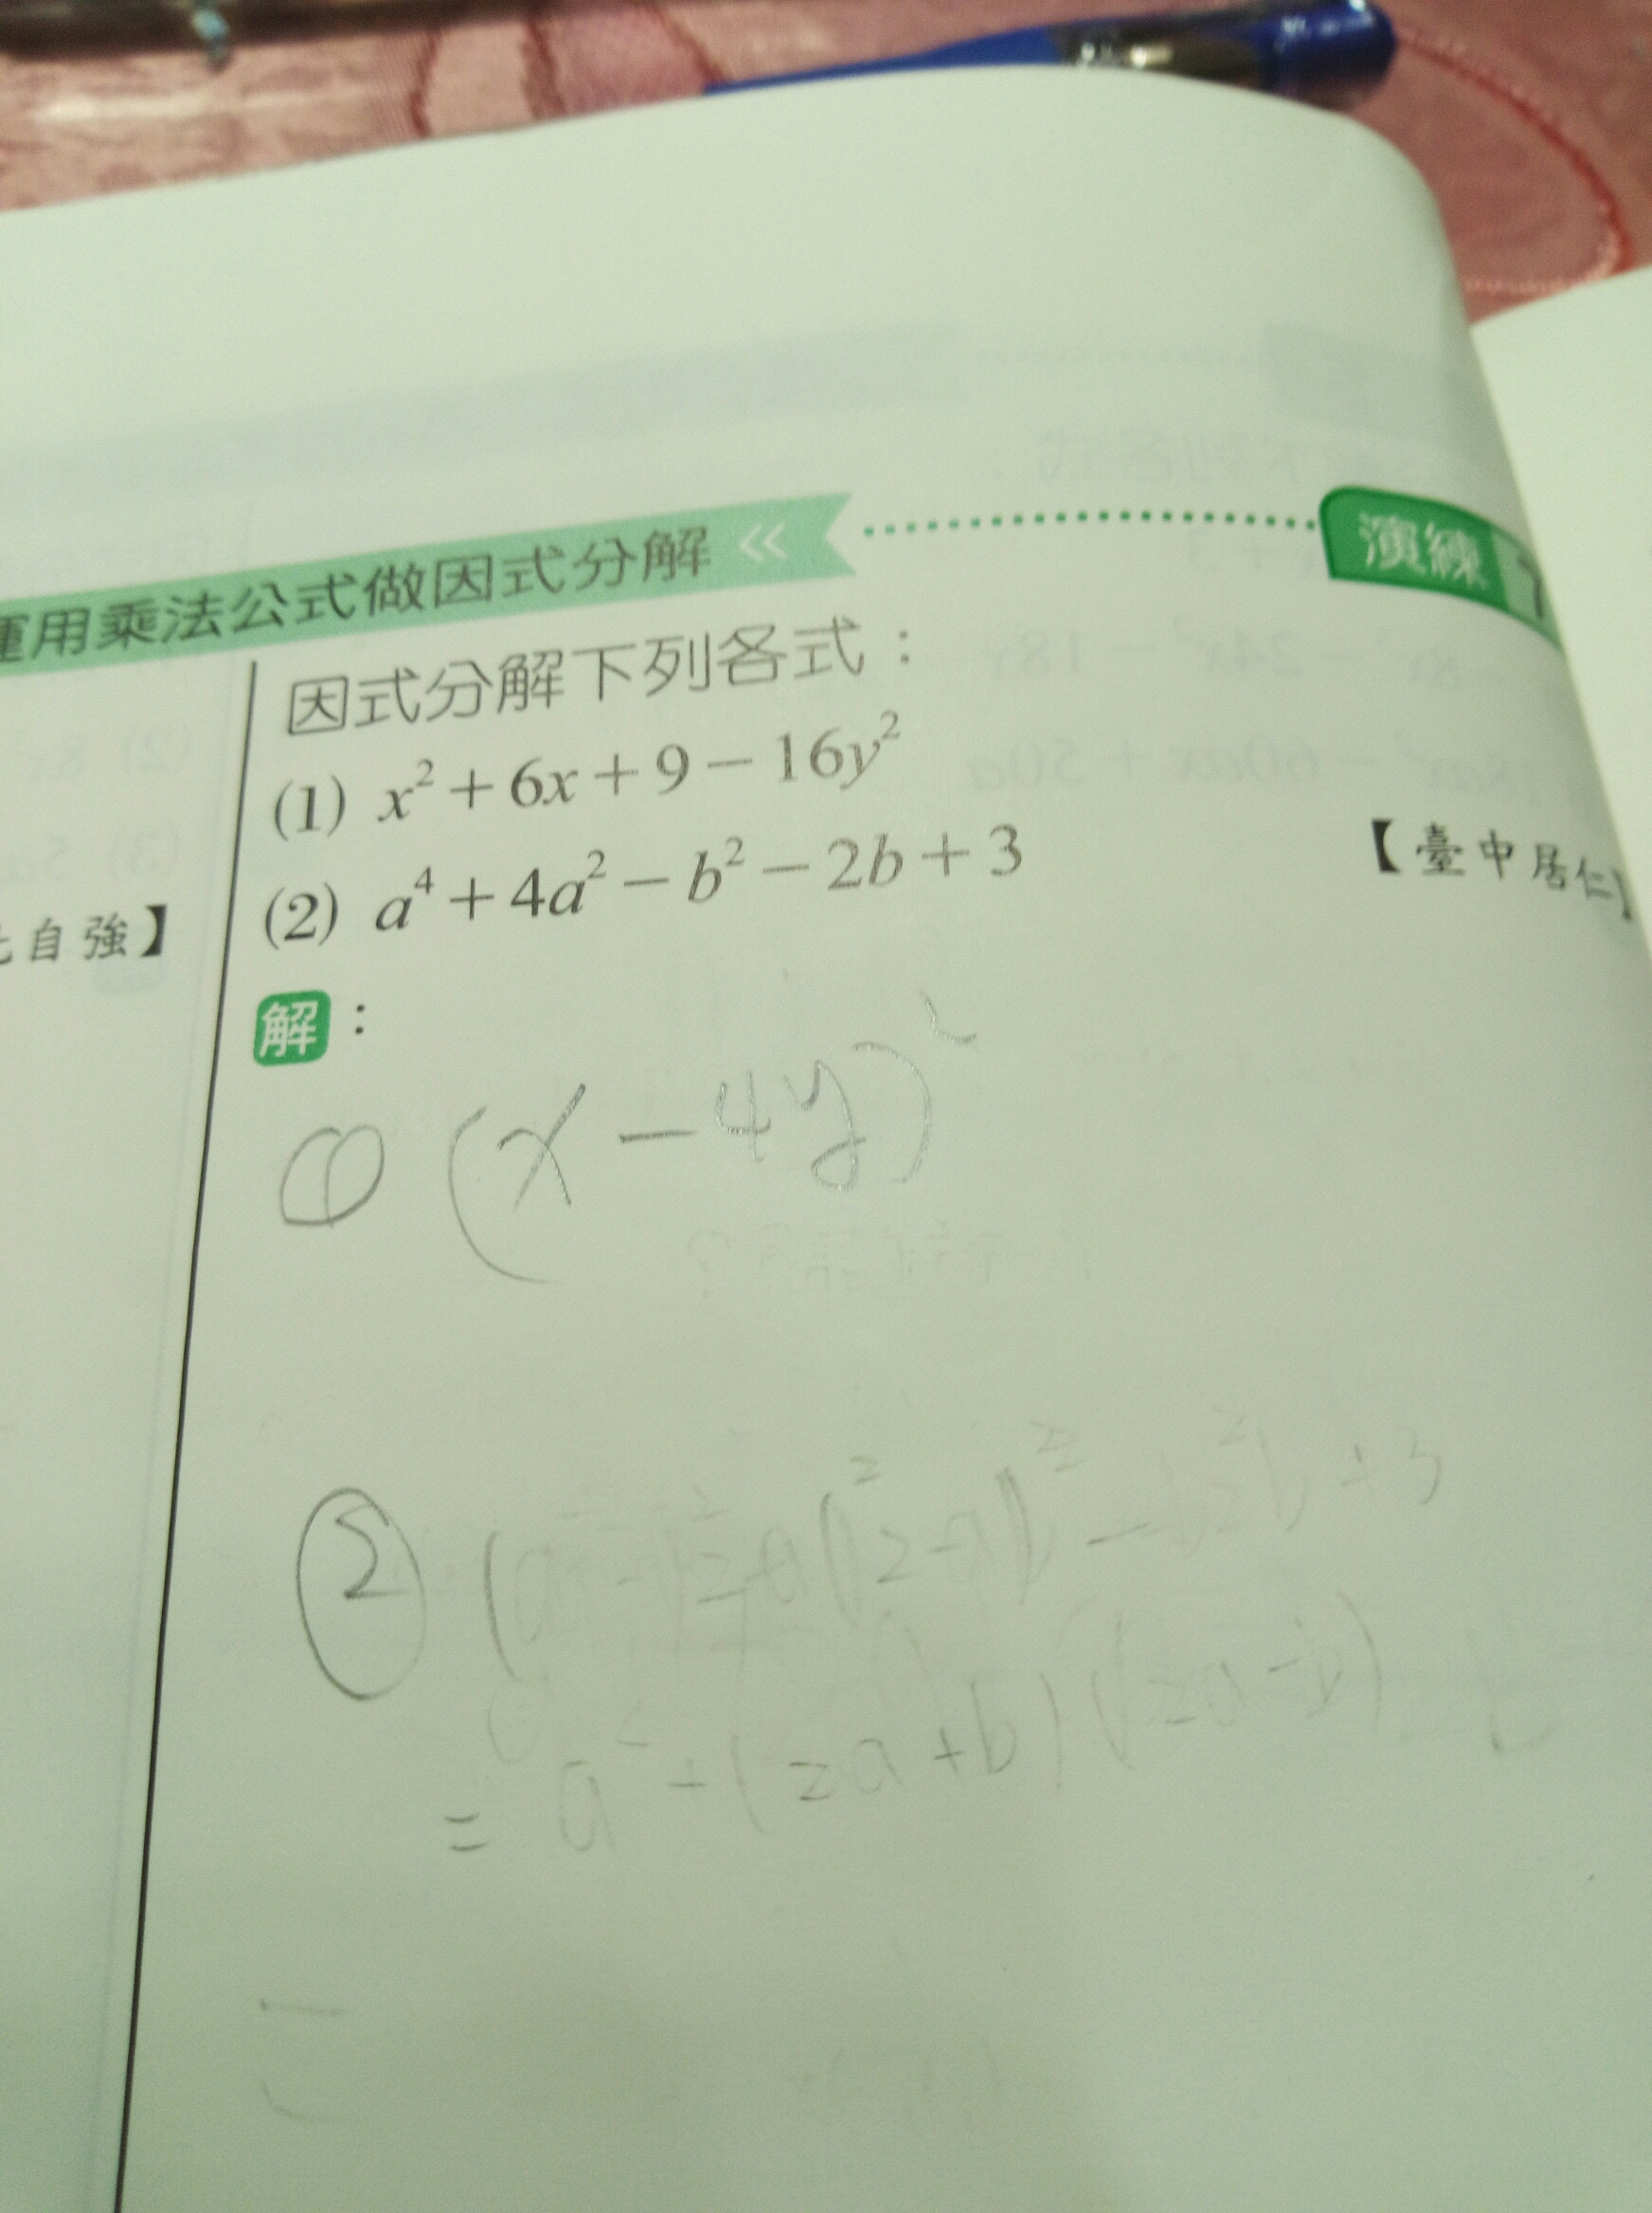 運用乘法公式做因式分解 «
演練 7
因式分解下列各式：
(1) x² + 6x + 9 − 16y²
(2) a⁴ + 4a² − b² − 2b + 3
【臺中居仁】
自強】
解：
① (x − 4y)²
②
= a² + (2a + b)(2a − b)